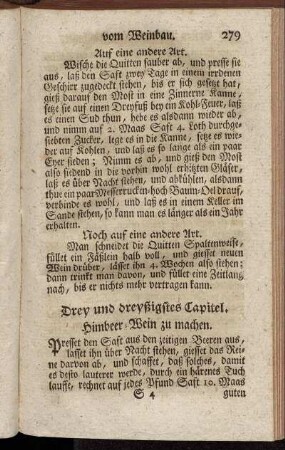 vom Weinbau. 279
Auf eine andere Art.
Wische die Quitten sauber ab, und presse sie
aus, laß den Saft zwey Tage in einem irrdenen
Geschirr zugedeckt stehen, bis er sich gesetzt hat,
gieß darauf den Most in eine Zinnerne Kanne,
setze sie auf einen Dreyfuß bey ein Kohl-Feuer, laß
es einen Sud thun, hebe es alsdann wieder ab,
und nimm auf 2. Maas Saft 4. Loth durchge-
siebten Zucker, lege es in die Kanne, setze es wie-
der auf Kohlen, und laß es so lange als ein paar
Eyer sieden; Nimm es ab, und gieß den Most
also siedend in die vorhin wohl erhitzten Gläser,
laß es über Nacht stehen, und abkühlen, alsdann
thue ein paar Messerrucken-hoch Baum-Oel drauf,
verbinde es wohl, und laß es in einem Keller im
Sande stehen, so kann man es länger als ein Jahr
erhalten.
Noch auf eine andere Art.
Man schneidet die Quitten Spaltenweise,
füllet ein Fäßlein halb voll, und giesset neuen
Wein drüber, lässet ihn 4. Wochen also stehen;
dann trinkt man davon, und füllet eine Zeitlang
nach, bis er nichts mehr vertragen kann.
Drey und dreyßigstes Capitel.
Himbeer-Wein zu machen.
Presset den Saft aus den zeitigen Beeren aus,
lasset ihn über Nacht stehen, giesset das Rei-
ne darvon ab, und schaffet, daß solches, damit
es desto lauterer werde, durch ein härenes Tuch
lauffe, rechnet auf jedes Pfund Saft 10. Maas
S 4 guten